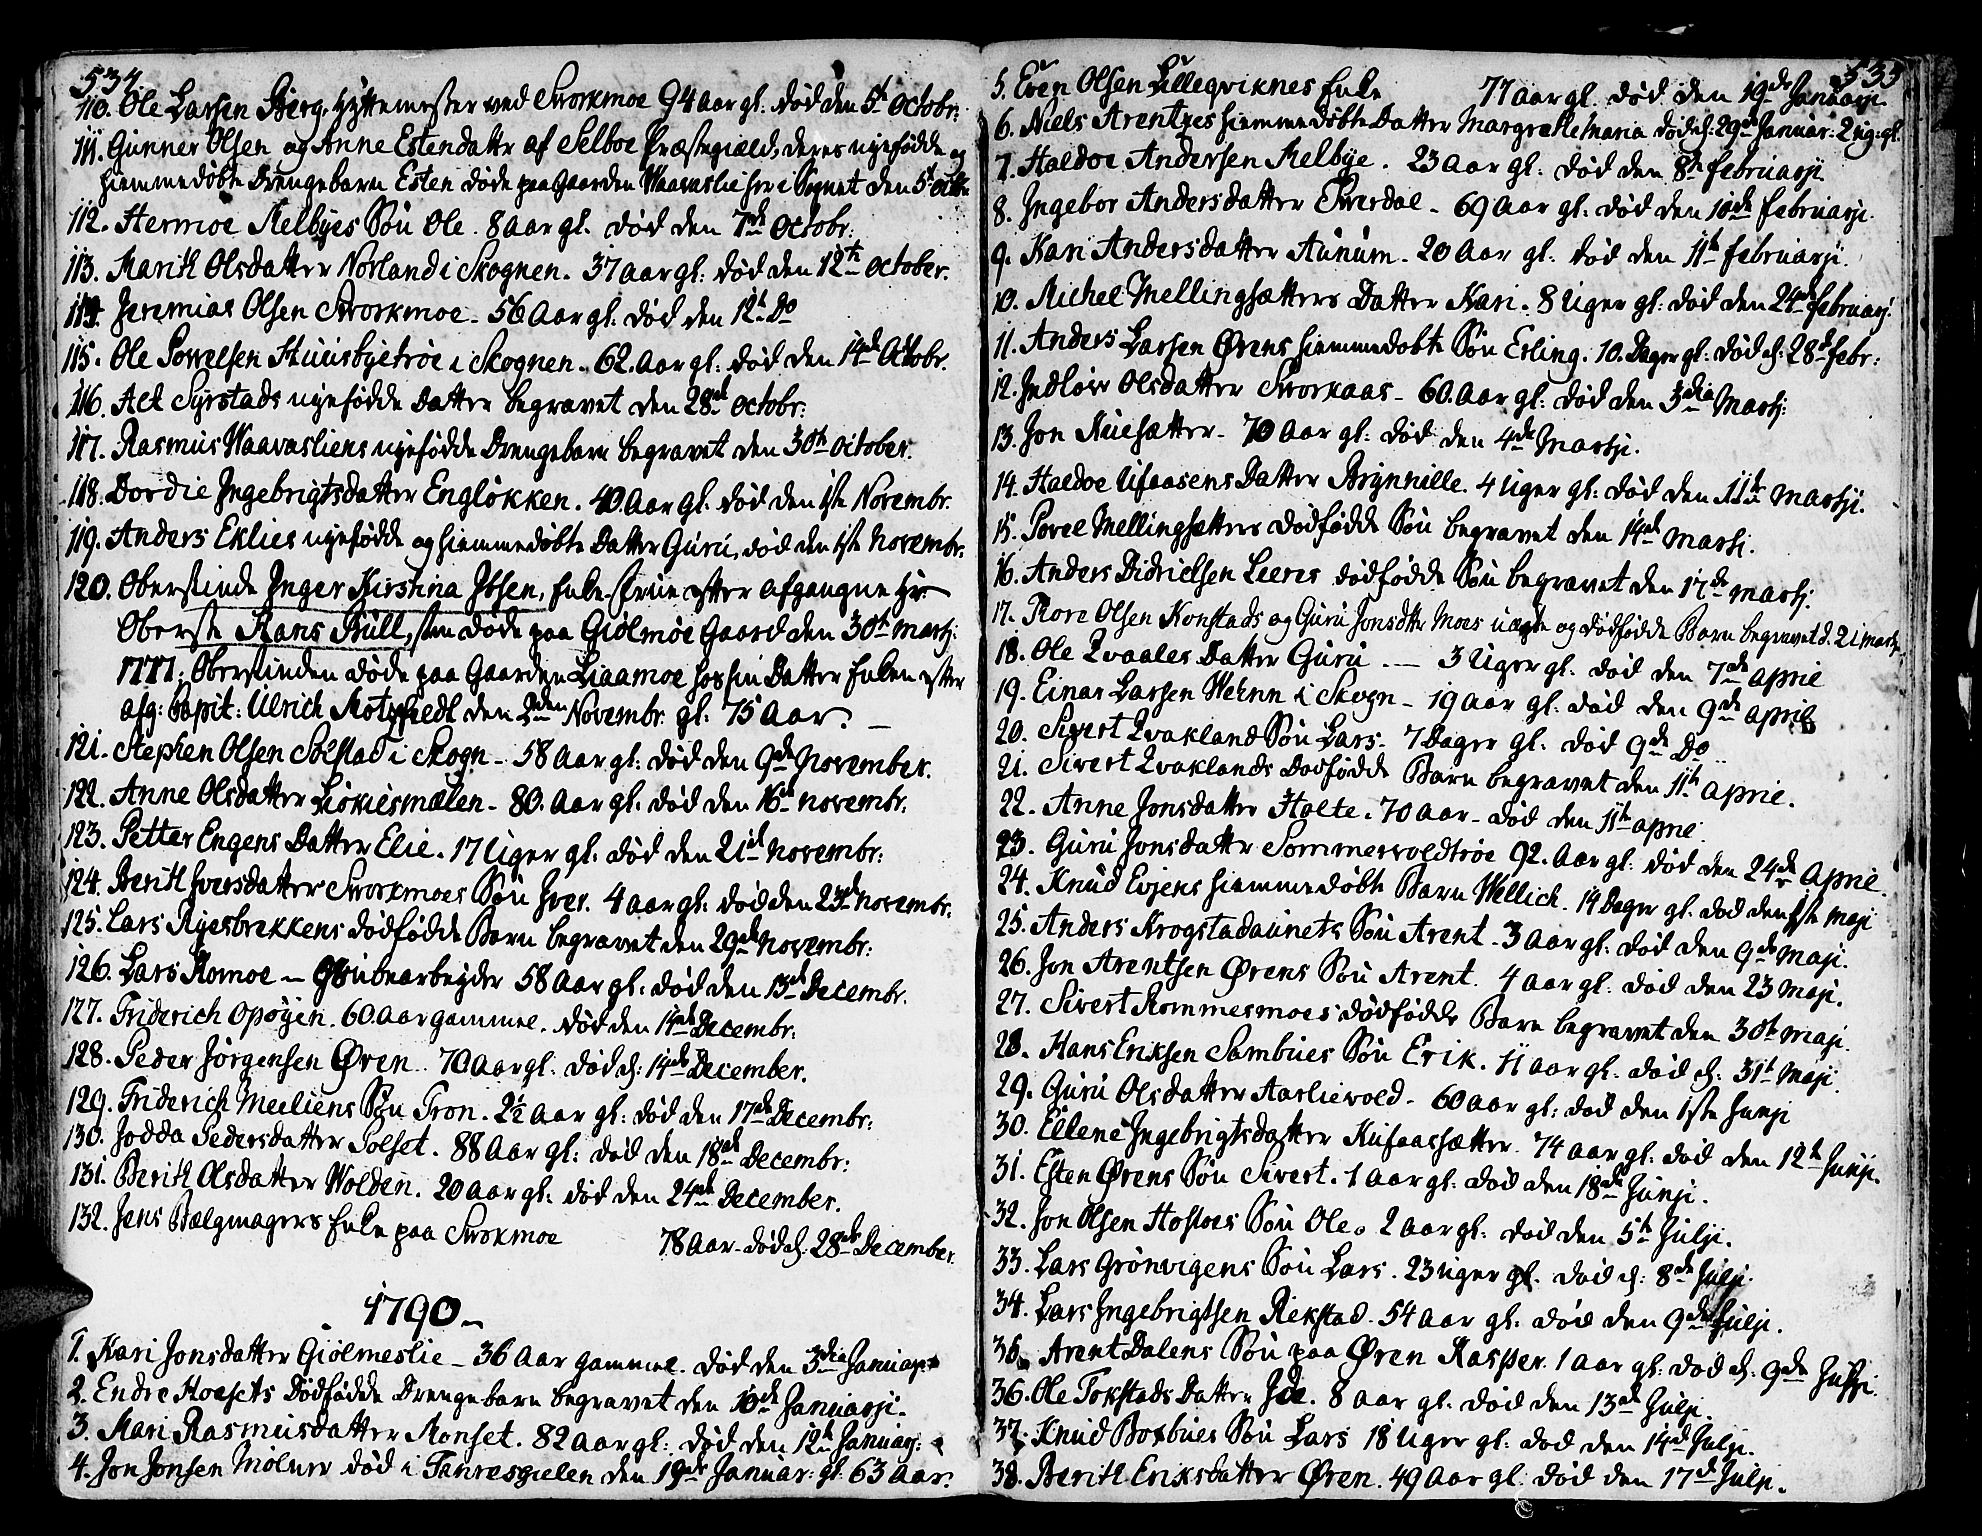 534
110. Ole Larsen Berg. Hyttemester ved Svorkmoe 94 Aar gl. død den 5t Octobr:
111. Gunner Olsen og Anne Estendattr af Selboe Præstegield, deres nyefødde og
hiemmedøbte Drengebarn Esten døde paa Gaarden Waavaslie her i Sognet den 5t Octbr
112. Hermoe Melbyes Søn Ole. 8 Aar gl. død den 7de Octobr:
113. Marith Olsdatter Norland i Skognen. 37 Aar gl: død den 12te October.
114. Jeremias Olsen Svorkmoe - 56 Aar gl: død den 12t Do
115. Ole Povelsen Huusbyetrøe i Skognen. 62. Aar gl: død den 14de Octobr.
116. Alt Syrstads nyefødde Datter begravet den 28de Octobr:
117. Rasmus Waavasliens nyefødde Drengebarn begravet den 30th October.
118. Dordie Ingebrigtsdatter Engløkken. 40 Aar gl. død den 1ste Novembr.
119. Anders Eklies nyefødde og hiemmedøbte Datter Guru, død den 1ste Novembr.
120. Oberstinde Inger Kirstina Ibsen, Enke-Frue efter afgangne Hr
Oberste Hans Bull, som døde paa Giølmøe Gaard den 30th Martj:
1777; Oberstinden døde paa Gaarden Liaamoe hos sin Datter Enken efter
afg: Capit: Ulrich Motzfeldt den 2den Novembr. gl: 75 Aar. -
121. Stephen Olsen Solstad i Skogn - 58 Aar gl: død den 9de November.
122. Anne Olsdatter Liøkiesmælen - 80. Aar gl: død den 16de Novembr.
123. Petter Engens Datter Elie. 17 Uger gl: død den 21de Novembr:
124. Berith Iversdatter Svorkmoes Søn Iver. 4 aar gl: død den 23de Novembr:
125. Lars Ryesbrekkens dødfødde Barn begravet den 29de Novembr:
126. Lars Romoe - Grubearbeyder 58 Aar gl: død den 13de Decembr.
127. Friderich Opøyen. 60 Aar gammel. død den 14de Decembr:
128. Peder Jørgensen Øren. 70 Aar gl. død d: 14de December.
129. Friderich Meeliens Søn Tron. 2½ Aar gl: død den 17de Decembr:
130. Jodda Pedersdatter Solset. 88 Aar gl: død den 18de Decembr:
131. Berith Olsdatter Wolden. 20 Aar gl: død den 24de December.
132. Jens Bælgmagers Enke paa Svorkmoe 78 Aar - død d. 28de December.
1790 -
1. Kari Jonsdatter Giølmeslie - 36 Aar gammel. død den 3die Januarji
2. Endre Hoesets Dødfødde Drengebarn begravet den 10de Januarji.
3. Mari Rasmusdatter Monset. 82 Aar gl: død den 12te Januarj:
4. Jon Jonsen Mølnar død i den 19de Januar: gl. 63 Aar.
535
5. Even Olsen Lilleqviknes Enke 77 Aar gl. død den 19de Januarji
6. Niels Arentzes hiemmedøbte Datter Margrethe Maria død d: 29de Januar: 2 ug: gl.
7. Haldoe Andersen Melbye. 23 Aar gl: død den 8de Februarji
8. Ingebor Andersdatter Sverdal - 69 Aar gl: død den 10de Februarji.
9. Kari Andersdatter Aunum - 20 Aar gl: død den 11th Februarji.
10. Michel Mellingsætters Datter Kari. 8 Uger gl: død den 24de Februarj.
11. Anders Larsen Ørens hiemmedøbte Søn Erling. 10. Dager gl: død d: 28de Febr:
12. Indløw Olsdatter Svorkaas - 60. Aar gl: død den 3die Martj:
13. Jon Kuesætter. 70 Aar gl: død den 4de Martji.
14. Haldoe Ufaasens Datter Brynnille. 4 Uger gl: død den 11te Martji.
15. Povel Mellingsætters dødfødde Søn begravet den 14de Martj.
16. Anders Didrichsen Leeres dødfødde Søn begravet den 17de Martj:
17. Tore Olsen Konstads og Guru Jonsdtter Moes uægte og dødfødde Barn begravet d. 21 Martj
18. Ole Qvaales Datter Guru - 3 Uger gl. død den 7de April
19. Einar Larsen Wehnn i Skogn - 19 Aar gl: død den 9de April
20. Sivert Qvakland Søn Lars. 7 Dager gl. død 9de Do
21. Sivert Qvaklands dødfødde Barn begravet den 11th April.
22. Anne Jonsdatter Holte. 70 Aar - død den 11th April.
23. Guru Jonsdattr Sommervoldtrøe 92. Aar gl: død den 24de April
24. Knud Evjens hiemmedøbte Barn Wellich. 14 Dager gl. død den 1ste Maji
25. Anders Krogstadaunets Søn Arent - 3 Aar gl: død den 9de Maji.
26. Jon Arentsen Ørens Søn Arent. 4 Aar gl: død den 23 Maji.
27. Sivert Rommesmoes dødfødde Barn begravet den 30th Maji.
28. Hans Eriksen Sambues Søn Erik. 11 Aar gl: død d: 31th Maji.
29. Guru Olsdatter Aarlievold - 60 Aar gl: død den 1ste Junji
30. Ellene Ingebrigtsdatter Kufaassætter. 74 Aar gl: død den 12th Junji.
31. Esten Ørens Søn Sivert. 1 Aar gl: død den 18de Junji.
32. Jon Olsen Hostoes Søn Ole. 2 Aar gl: død den 5th Julji.
33. Lars Grønvigens Søn Lars. 23 Uger gl. død d: 8de Julji.
34. Lars Ingebrigtsen Rekstad. 54 Aar gl: død den 9de Julji.
35. Arent Dalens Søn paa Øren Kasper. 1 Aar gl: død d: 9de Julji.
36. Ole Tokstads Datter Ide. 8 Aar gl: død den 13de Julji
37. Knud Bosbues Søn Lars 18 Uger gl: død den 14de Julji.
38. Berith Eriksdatter Øren. 49 Aar gl. død den 17de Julji.